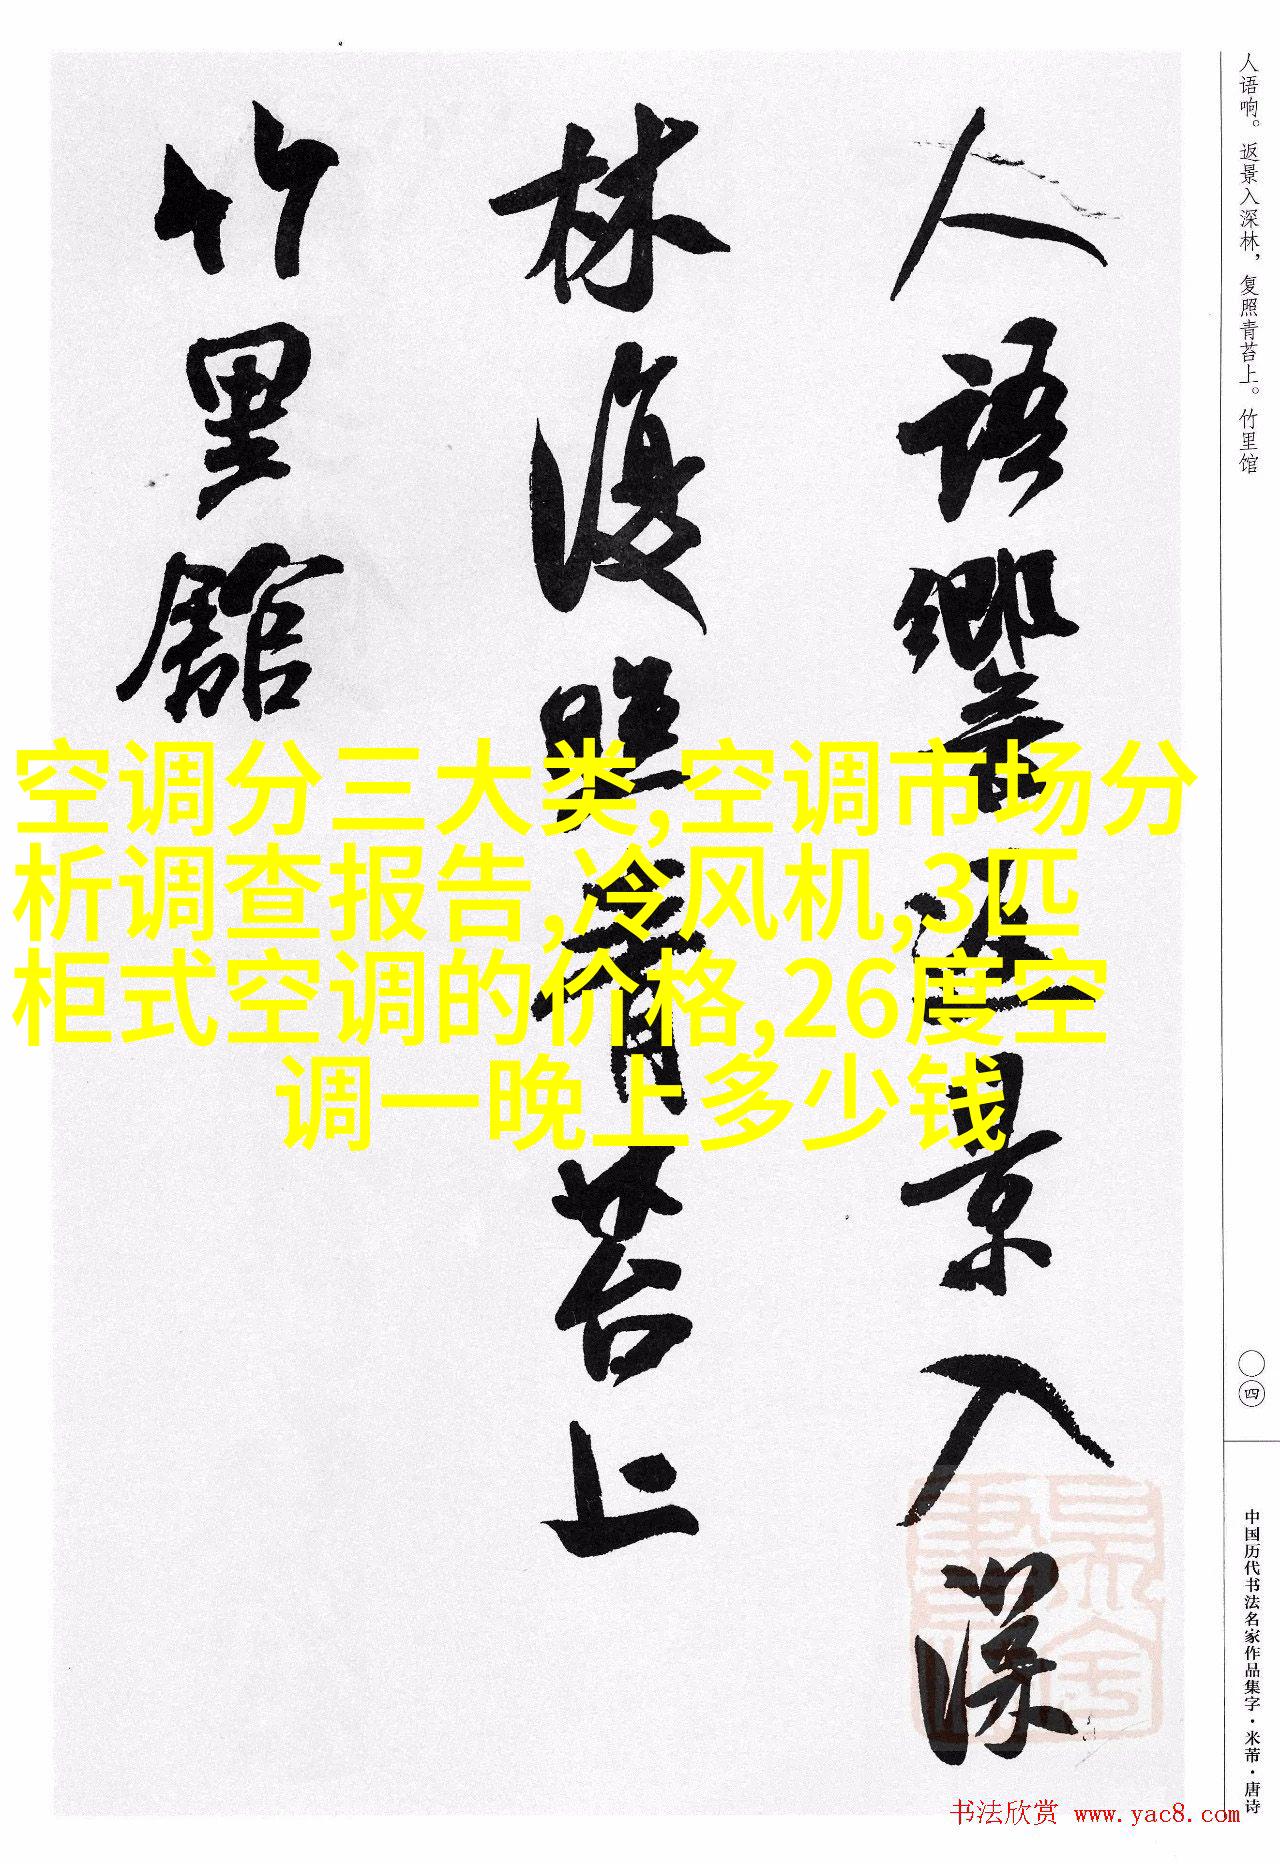 人语响。返景入深林，复照青苔上。竹里馆
人語響返景入深
林復照青苔上
竹里館
空调分三大类,空调市场分
析调查报告,冷风机,3匹
柜式空调的价格,26度空
调一晚上多少钱
〇四
中国历代书法名家作品集字·米芾·唐诗
书法欣赏 www.yac8.com